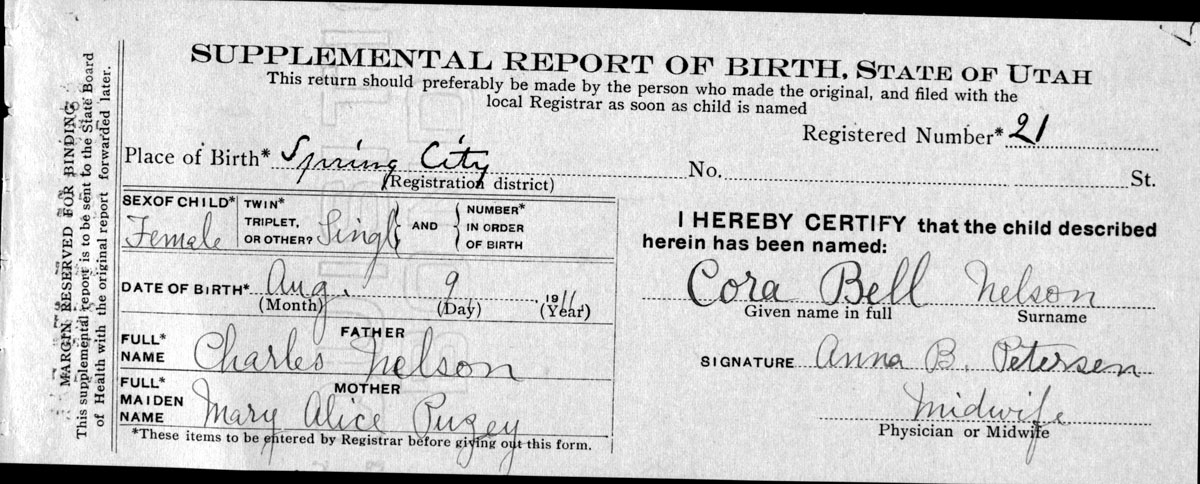 SUPPLEMENTAL REPORT OF BIRTH, STATE OF UTAH
This return should preferably be made by the person who made the original, and filed with the
local Registrar as soon as child is named
Registered Number* 21
Place of Birth* Spring City No. St.
(Registration district)
SEX OF CHILD* Female
TWIN*
TRIPLET,
OR OTHER? Singl
AND
NUMBER*
IN ORDER
OF BIRTH
DATE OF BIRTH* Aug. 9 1911
(Month) (Day) (Year)
FATHER
FULL*
NAME Charles Nelson
MOTHER
FULL*
MAIDEN
NAME Mary Alice Pugey
*These items to be entered by Registrar before giving out this form.
I HEREBY CERTIFY that the child described
herein has been named:
Cora Bell Nelson
Given name in full Surname
SIGNATURE Anna B. Petersen
Midwife
Physician or Midwife
MARGIN RESERVED FOR BINDING
This supplemental report is to be sent to the State Board
of Health with the original report forwarded later.